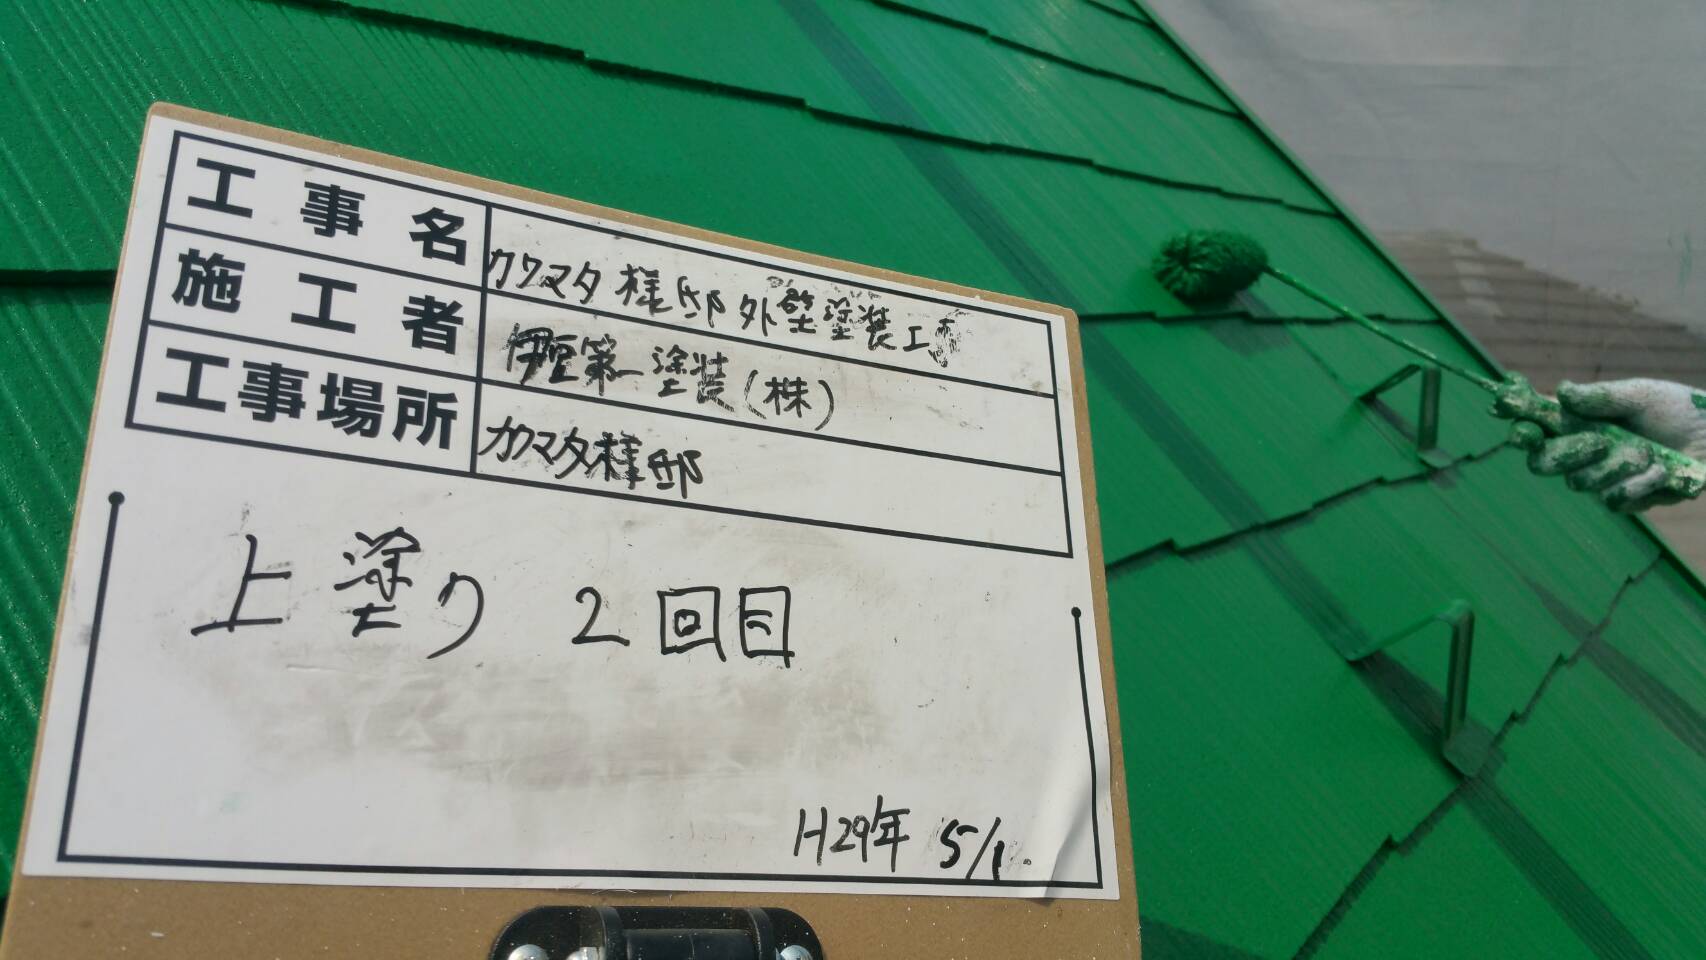 工事名 カワマタ様邸外壁塗装工事
施工者 伊豆第一塗装(株)
工事場所 カワマタ様邸
上塗り 2回目
H29年 5/1.